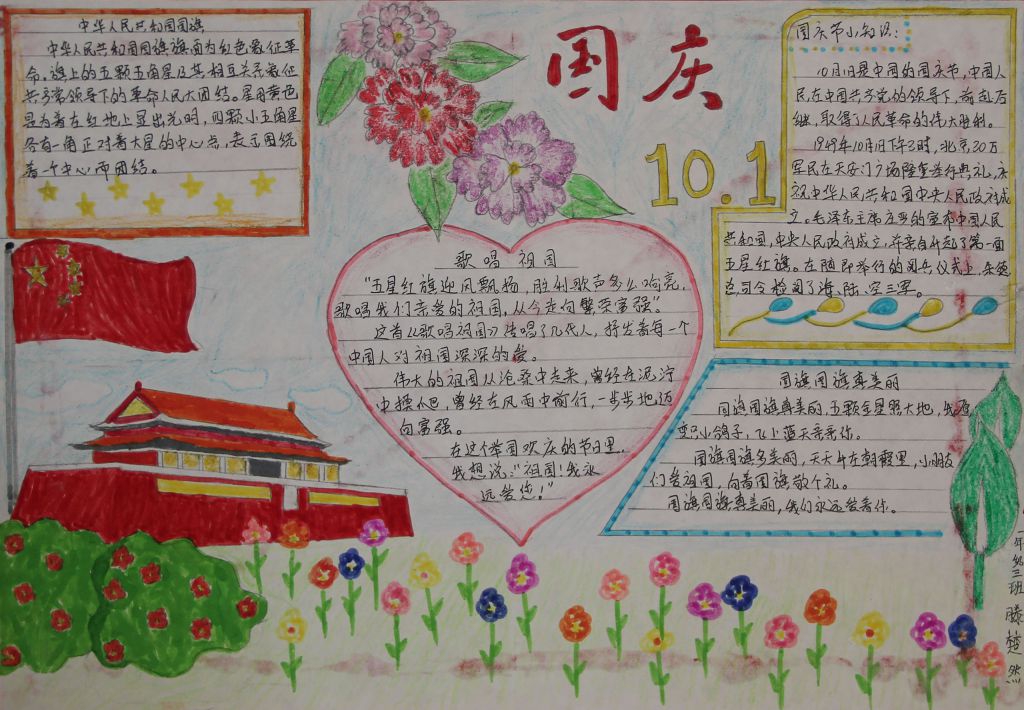 中华人民共和国国旗
中华人民共和国国旗旗面为红色象征革
命。旗上的五颗五角星及其相互关系象征
共产党领导下的革命人民大团结。星用黄色
是为着在红地上显出光明，四颗小五角星
各有一角正对着大星的中心点，表示围绕
着一个中心而团结。
国庆
10.1
国庆节小知识：
10月1日是中国的国庆节，中国人
民在中国共产党的领导下，前赴后
继，取得了人民革命的伟大胜利。
1949年10月1日下午3时，北京30万
军民在天安门广场隆重举行典礼，庆
祝中华人民共和国中央人民政府成
立。毛泽东主席庄严的宣布中国人民
共和国，中央人民政府成立，并亲自升起了第一面
五星红旗。在随即举行的阅兵仪式上，朱德
总司令检阅了海、陆、空三军。
歌唱祖国
“五星红旗迎风飘扬，胜利歌声多么响亮，
歌唱我们亲爱的祖国，从今走向繁荣富强”。
这首《歌唱祖国》传唱了几代人，抒发着每一个
中国人对祖国深深的爱。
伟大的祖国从沧桑中走来，曾经在泥泞
中摸爬，曾经在风雨中前行，一步步地迈
向富强。
在这个举国欢庆的节日里，
我想说：“祖国！我永
远爱您！”
国旗国旗真美丽
国旗国旗真美丽，五颗金星照大地，我愿
变只小鸽子，飞上蓝天亲亲你。
国旗国旗多美丽，天天升在朝霞里，小朋友
们爱祖国，向着国旗敬个礼。
国旗国旗真美丽，我们永远爱着你。
年级三班 滕楚然